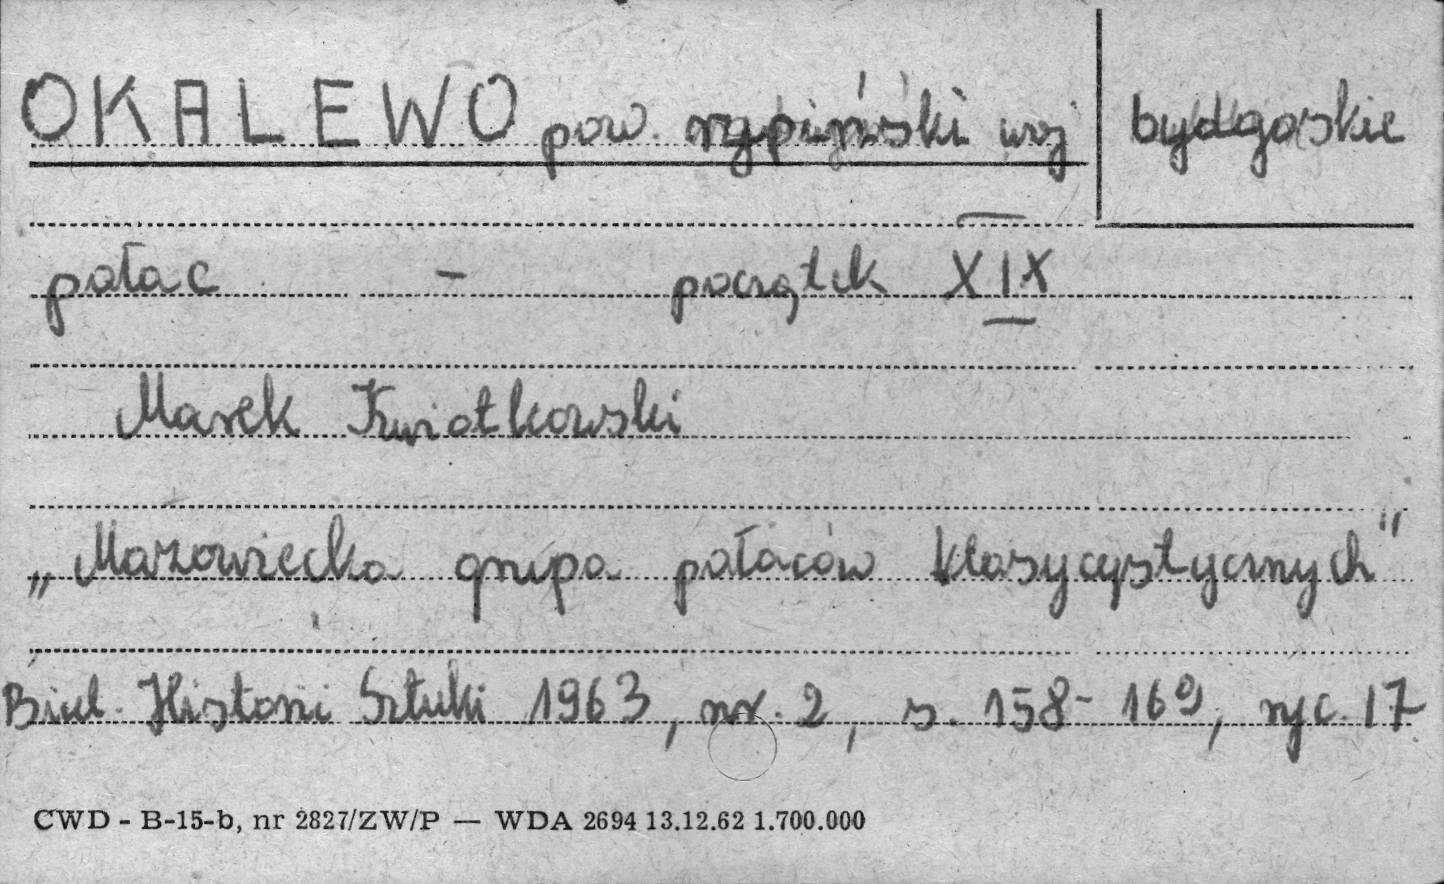 OKALEWO pow. rypiński woj bydgoskie
pałac - początek XIX
Marek Kwiatkowski
„Mazowiecka grupa pałaców klasycystycznych"
Biul. Historii Sztuki 1963, nr. 2, s. 158-169, ryc. 17
CWD - B-15-b, nr 2827/ZW/P — WDA 2694 13.12.62 1.700.000